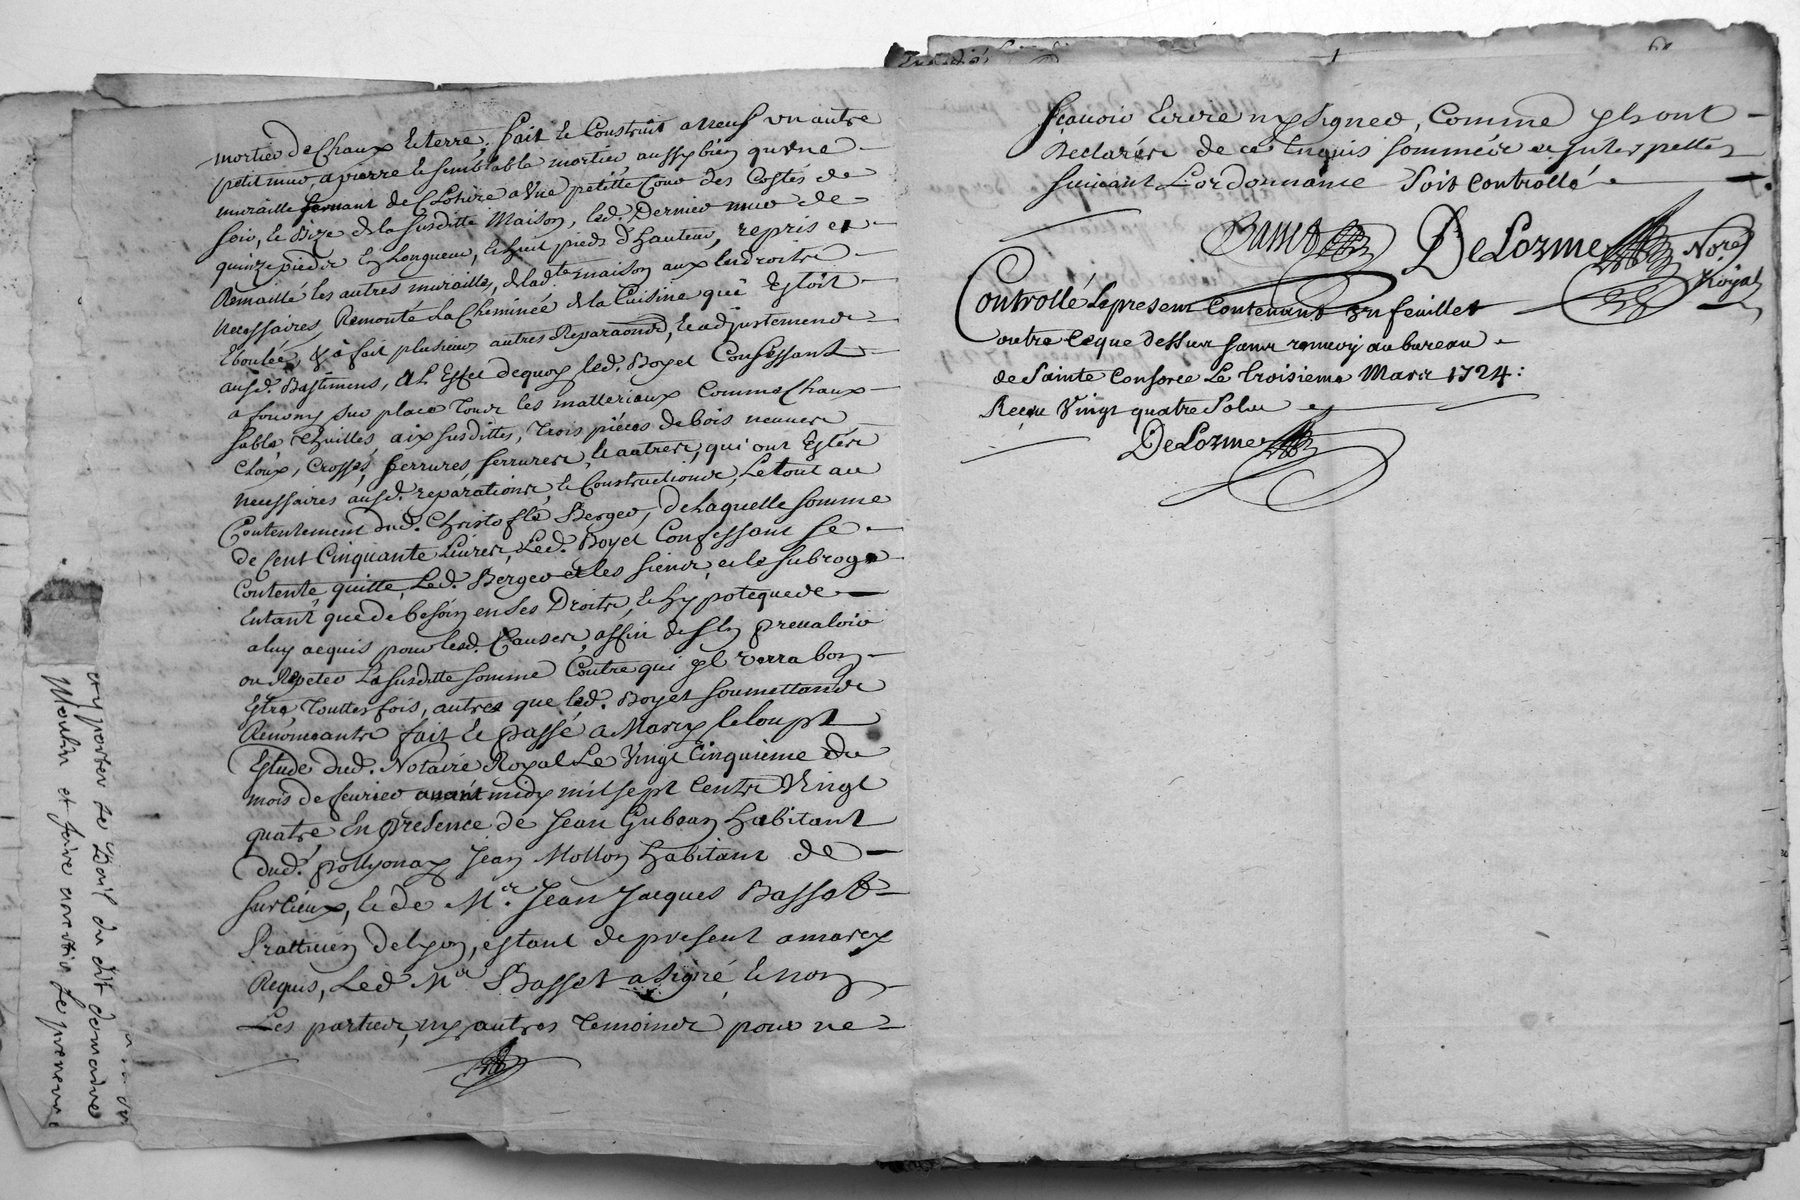 mortier de Chaux & terre, fait & Construit a neuf un autre
petit mur a pierre & semblable mortier aussy bien qu'une
muraille servant de Cloture a une petitte Cour des Costés de
soir, & Bize de la susditte Maison, led. Dernier mur de
quinze pieds en Longueur, & huit pieds d'hauteur, repris et
Remaillé les autres murailles, de lad.te maison aux Endroits
necessaires Remonté la Cheminée de la Cuisine qui Estoit
Eboulée & a fait plusieurs autres Reparaons, & adjustemens
ausd. Bastimens, a L'Effet dequoy led. Boyet Confessant
a fourny sur place tous les matteriaux comme Chaux
sable thuilles aix susdittes, trois pièces de bois neuues
Cloux, Crosses, ferrures, serrures, & autres, qui ont Estés
necessaires ausd. reparations, & Constructions, Le tout au
Contentement dud. Christofle Berger, de laquelle somme
de Cent Cinquante Liures, Led. Boyet Confessant se
Contente, quitte, Led. Berger et les siens, et le subroge
Entant que de besoin en ses Droits, & hypoteques
a luy acquis pour lesd. Causes, affin de s'En preualoir
ou Repeter La susditte somme Contre qui Il verra bon
Estre touttes fois, autres que led. Boyet soumettans
Renonceants fait & passé a Marcy le loup &
Estude dud. Notaire Royal Le Vingt Cinquieme du
mois de feurier auant midy mil sept Cents Vingt
quatre, En presence de Jean Gubean habitant
dud. pollyonay Jean Mollon habitant de
surlieux, & de Mr. Jean Jacques Bassot
Pratticien de Lyon, estant de present a marcy
Requis, Led Mr Bassot a signé, & non
Les parties, ny autres temoins pour ne
sçauoir Ecrire ny signer, Comme Ils ont
Declarés de ce Enquis sommés et Interpellés
suiuant L'ordonnance soit Controllé
Bassot DeLorme Nore
Royal
Controllé Le present Contenant un feuillet
outre ce que dessus sans renuoy au bureau
de Sainte Consorce Le troisieme Mars 1724:
Receu Vingt quatre Sols
DeLorme
emporter le Bail du dit domaine
Moulin et faire avertir le preneur